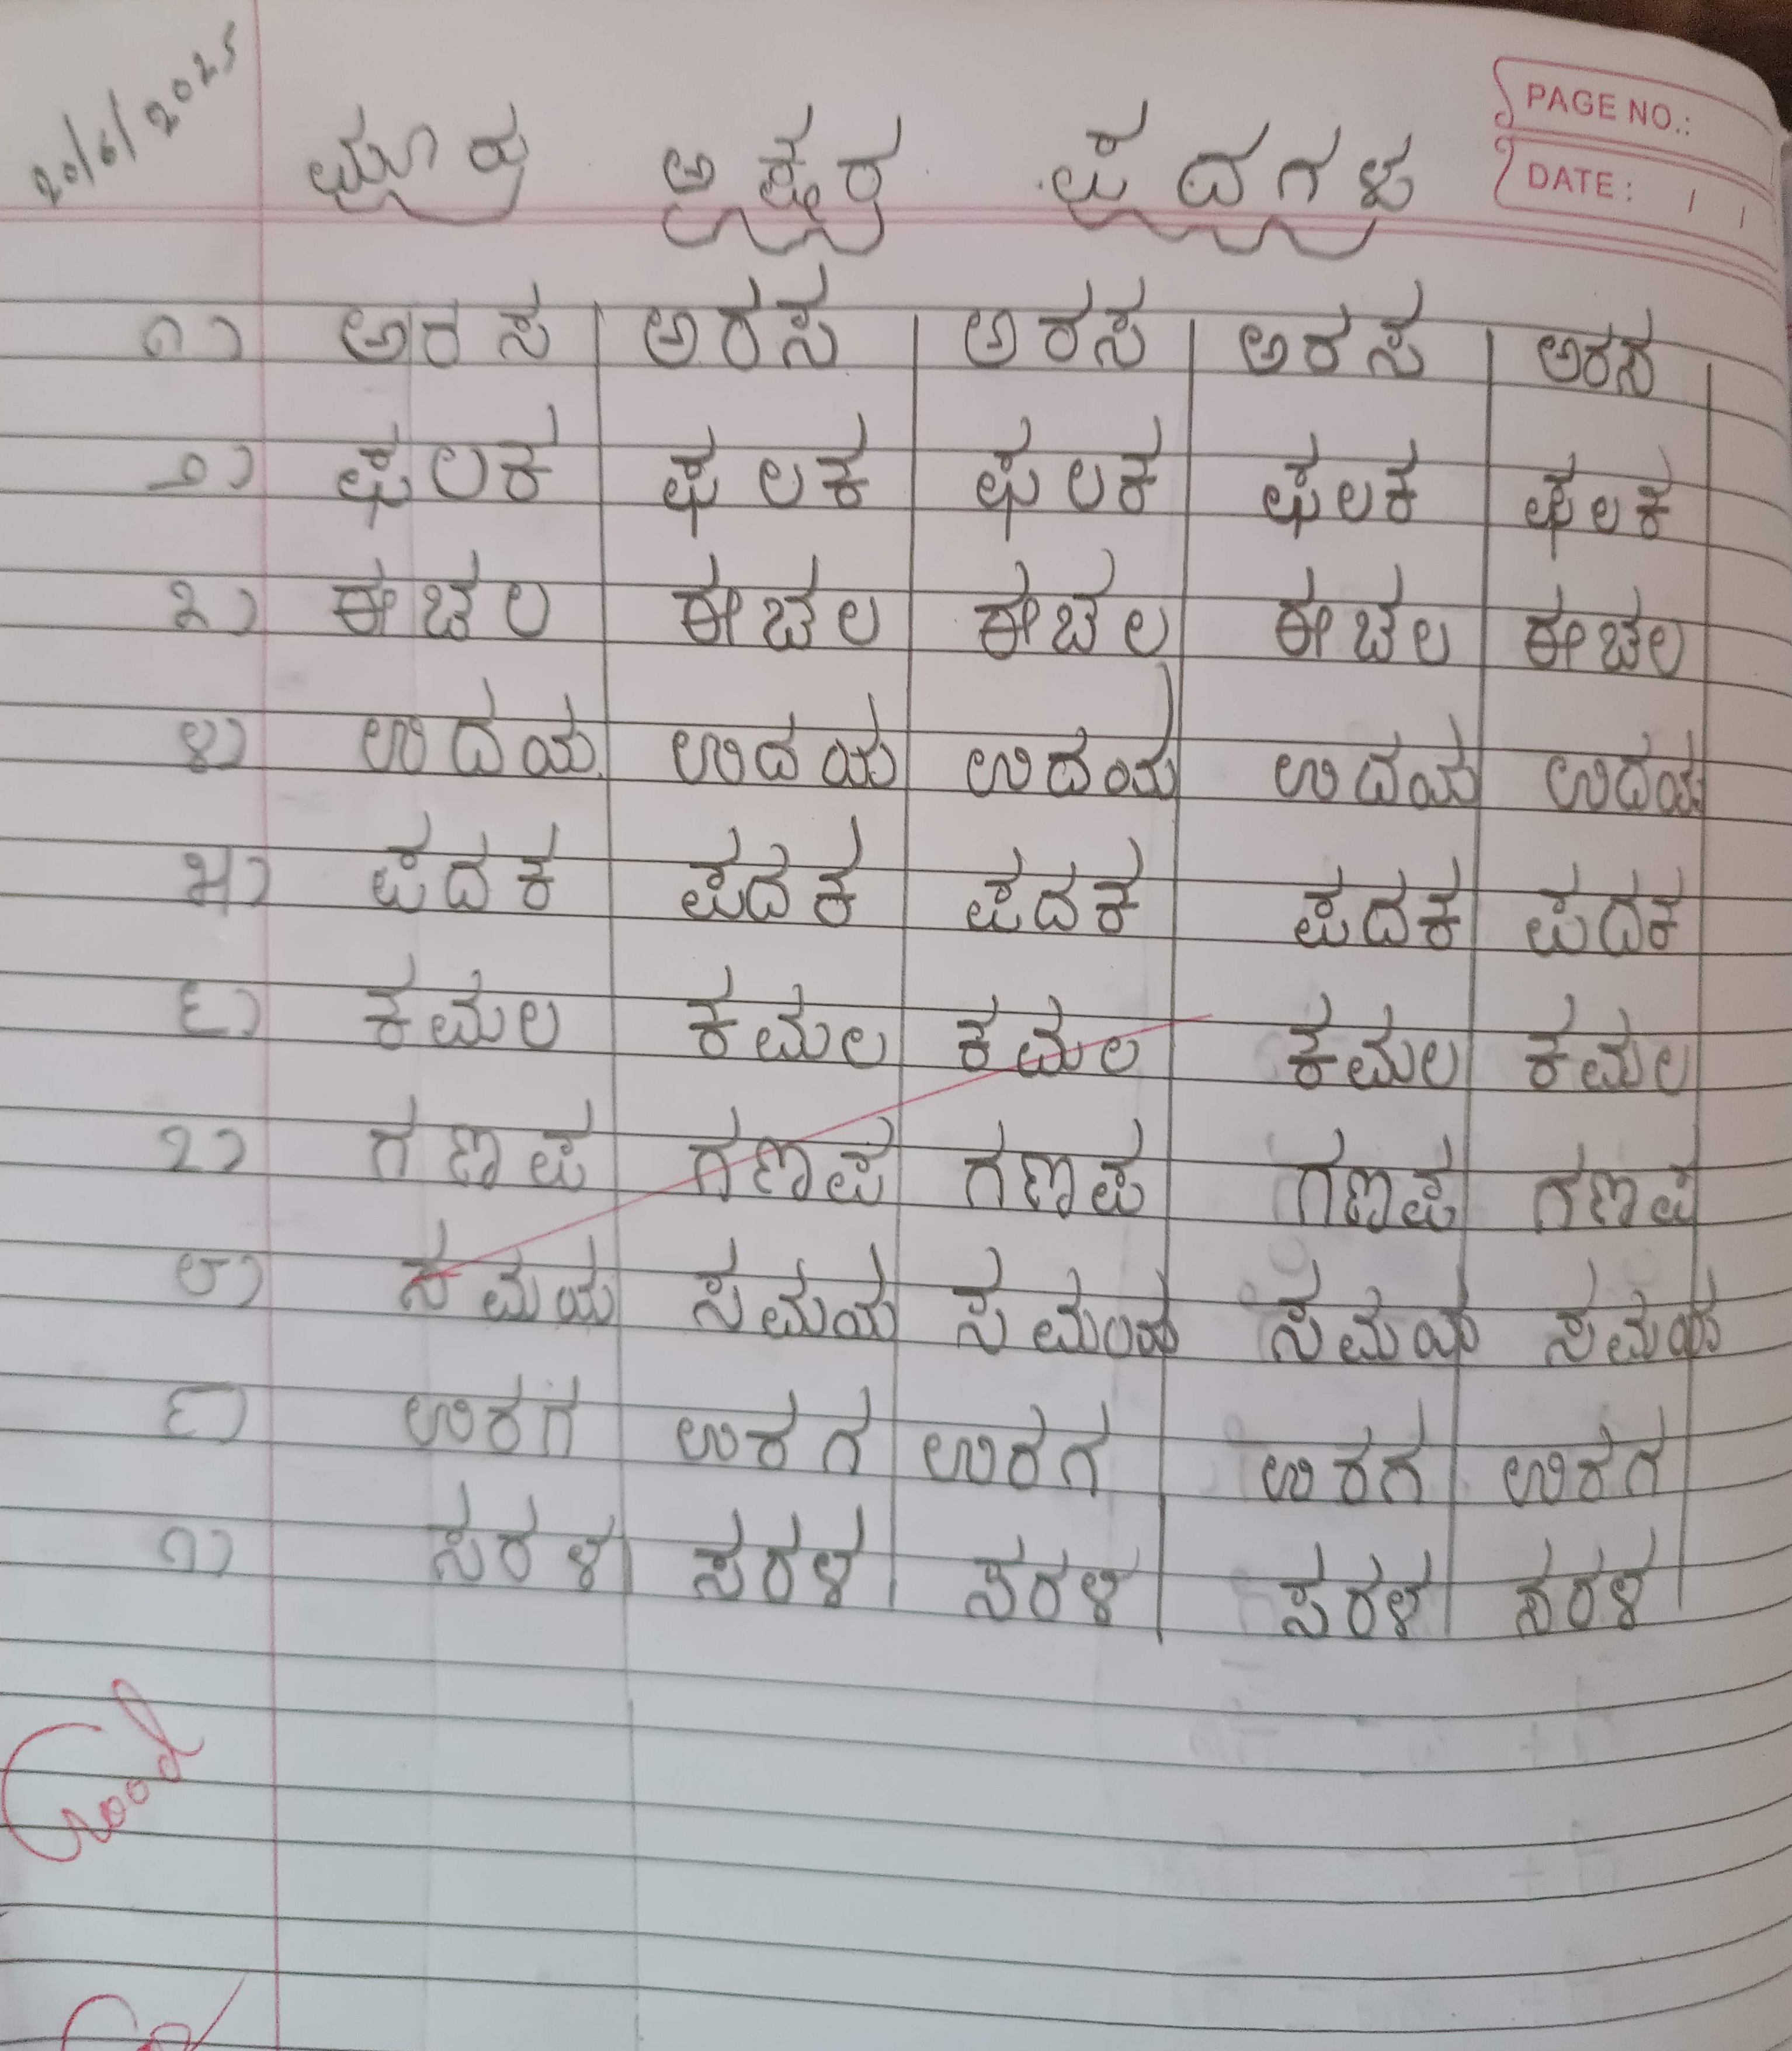 20/6/2025
PAGE NO.:
DATE: / /
ಮೂರು ಅಕ್ಷರ ಪದಗಳು
೧) ಅರಸ ಅರಸ ಅರಸ ಅರಸ ಅರಸ
೨) ಫಲಕ ಫಲಕ ಫಲಕ ಫಲಕ ಫಲಕ
೩) ಈಚಲ ಈಚಲ ಈಚಲ ಈಚಲ ಈಚಲ
೪) ಉದಯ ಉದಯ ಉದಯ ಉದಯ ಉದಯ
೫) ಪದಕ ಪದಕ ಪದಕ ಪದಕ ಪದಕ
೬) ಕಮಲ ಕಮಲ ಕಮಲ ಕಮಲ ಕಮಲ
೭) ಗಣಪ ಗಣಪ ಗಣಪ ಗಣಪ ಗಣಪ
೮) ಸಮಯ ಸಮಯ ಸಮಯ ಸಮಯ ಸಮಯ
೯) ಉರಗ ಉರಗ ಉರಗ ಉರಗ ಉರಗ
೧) ಸರಳ ಸರಳ ಸರಳ ಸರಳ ಸರಳ
Good